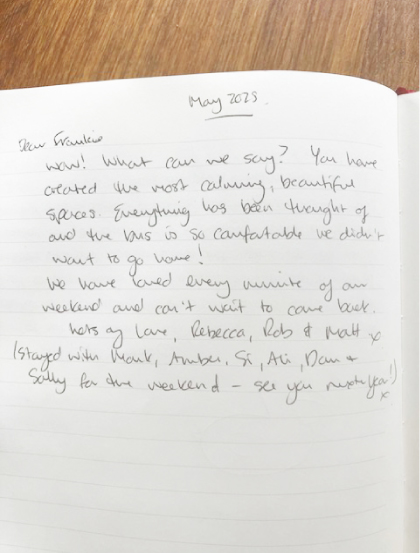 May 2023.
Dear Frankie
Wow! What can we say? You have
created the most calming, beautiful
spaces. Everything has been thought of
and the bus is so comfortable we didn't
want to go home!
We have loved every minute of our
weekend and can't wait to come back.
Lots of love, Rebecca, Rob & Matt x
(stayed with Mark, Amber, Si, Ali, Dan &
Sally for the weekend - see you next year!)
x